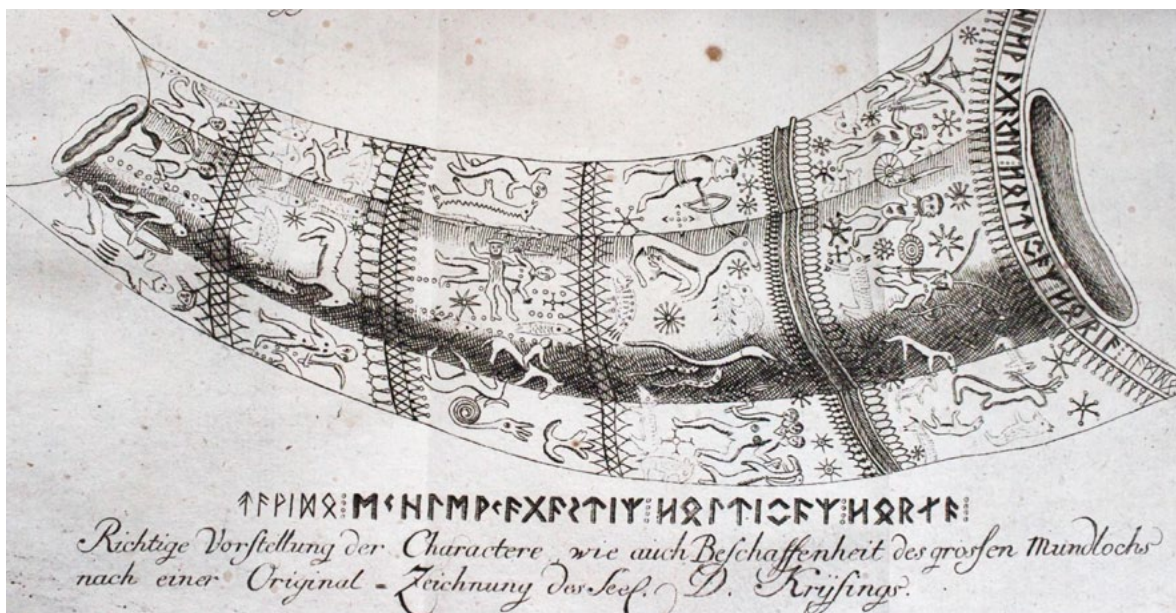 ᚺᛟᛚᛏᛁᛜᚨᛉ ᚺᛟᚱᚾᚨ
ᛏᚨᚹᛁᛞᛟ⁝ᛖᚲᚺᛚᛖᚹᚲᚨᚷᚨᛊᛏᛁᛉ⁝ᚺᛟᛚᛏᛁᛜᚨᛉ⁝ᚺᛟᚱᚾᚨ⁝
Richtige Vorstellung der Charactere, wie auch Beschaffenheit des grossen Mundlochs
nach einer Original-Zeichnung des Seel. D. Krÿsings.